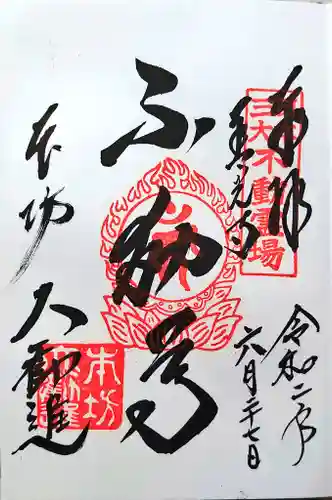 三大不動霊場
奉拝
善光寺
令和二年
六月二十七日
不動尊
本坊
大勧進
本坊